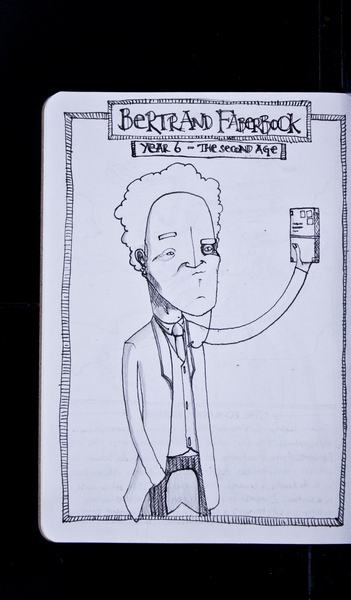 BERTRAND FABERBOCK
YEAR 6 - THE SECOND AGE